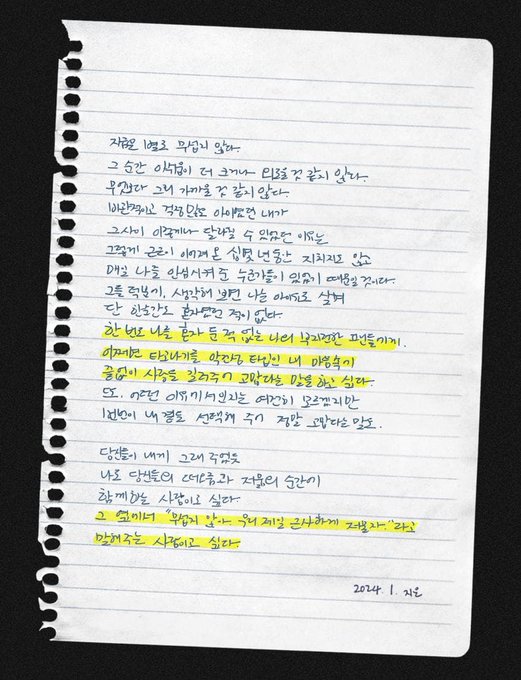 지금은 별로 무섭지 않다.
그 순간 아쉬움이 더 크거나 외로울 것 같지 않다.
무엇보다 그리 가까울 것 같지 않다.
비관적이고 걱정 많던 아이였던 내가
그 사이 이렇게나 달라질 수 있었던 이유는
그렇게 근근이 이어져 온 십몇 년 동안 지치지도 않고
매일 나를 안심시켜 준 누군가들이 있었기 때문일 것이다.
그들 덕분에, 생각해 보면 나는 아이유로 살며
단 한순간도 혼자였던 적이 없다.
한 번도 나를 혼자 둔 적 없는 나의 부지런한 팬들에게.
어쩌면 타고나기를 악건성 타입인 내 마음속에
끝없이 사랑을 길러주어 고맙다는 말을 하고 싶다.
또. 어떤 이유에서인지는 여전히 모르겠지만
1번번이 내 곁을 선택해 주어 정말 고맙다는 말도.
당신들이 내게 그래 주었듯
나도 당신들의 떠오름과 저묾의 순간에
함께하는 사람이고 싶다.
그 옆에서 "무섭지 않아. 우리 제일 근사하게 저물자."라고
말해주는 사람이고 싶다.
2024. 1. 지은